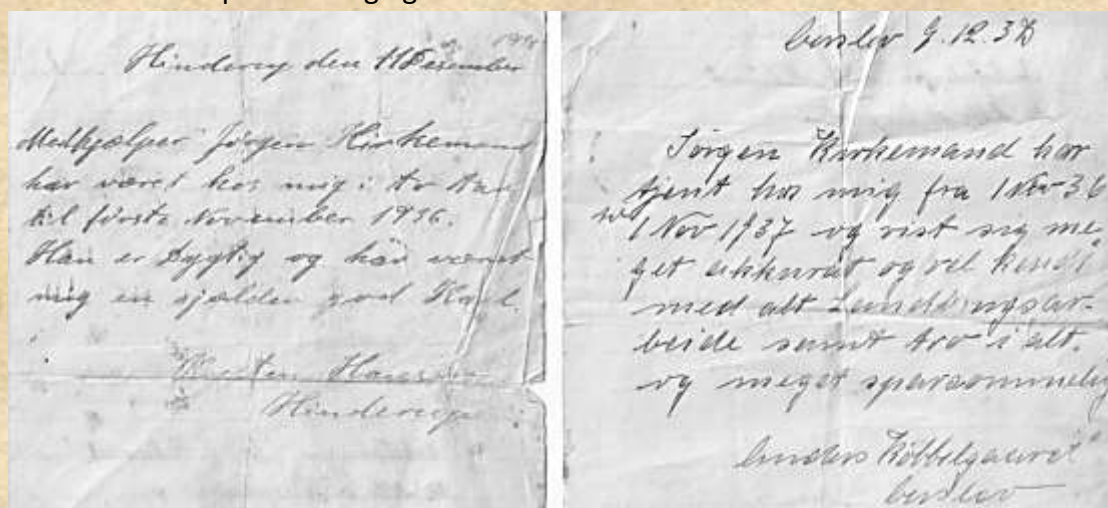 Hinderup den 11 December
Medhjælper Jørgen Kirkemand
har været hos mig i to Aar
til første November 1936.
Han er Dygtig og har været
mig en sjælden god Karl.
Hansen
Hinderup
9.12.37
Jørgen Kirkemand har
tjent hos mig fra 1 Nov 36
1 Nov 1937 og vist sig me-
get akkurat og vel kendt
med alt Landbrugsar-
beide samt tro i alt.
og meget sparsommelig
Anders Købbelgaard